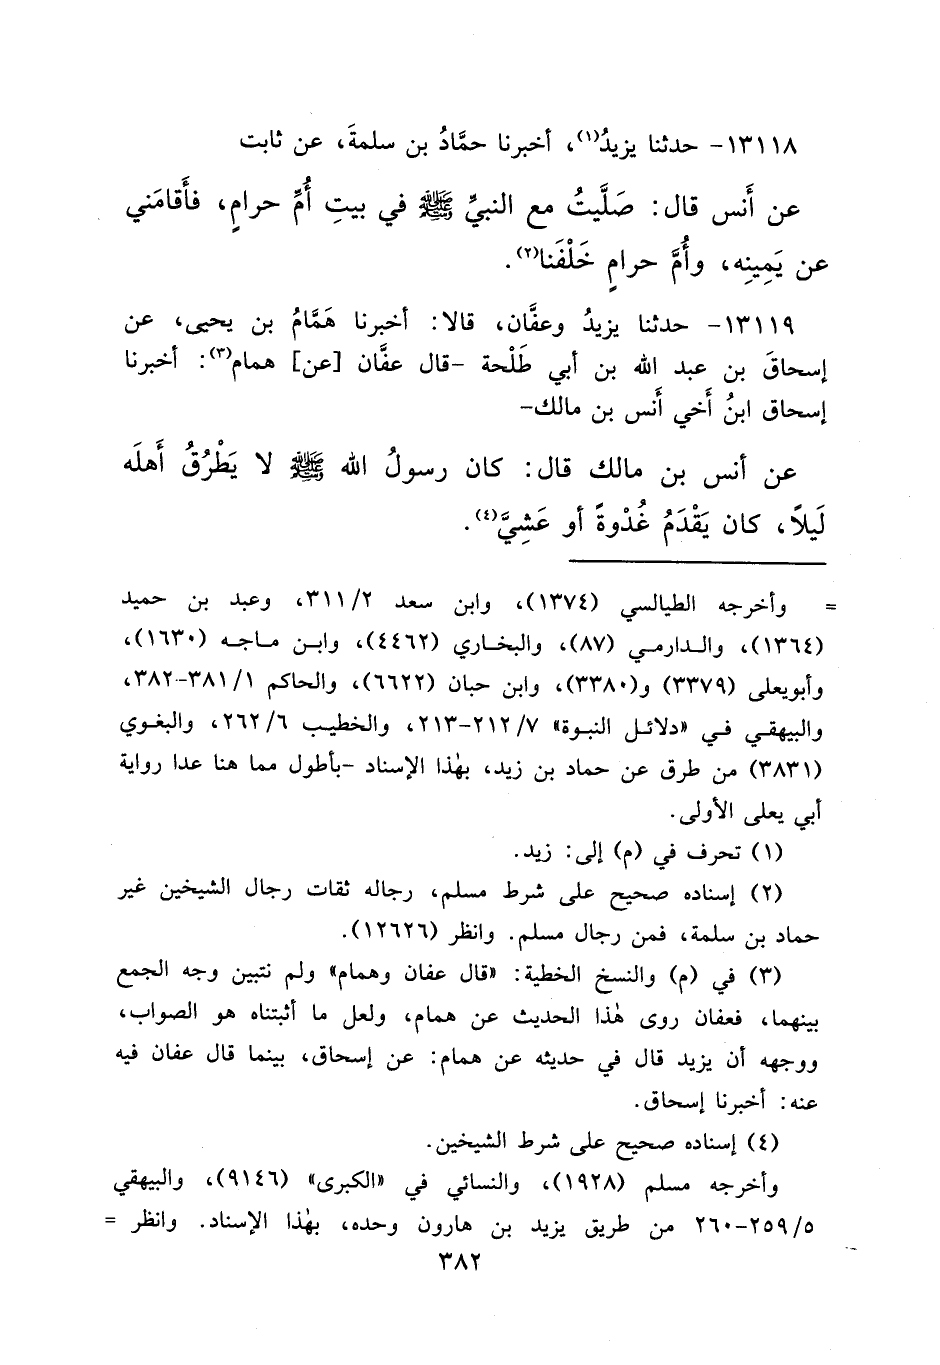 ١٣١١٨- حدثنا يزيدُ(١)، أخبرنا حمَّادُ بن سلمةَ، عن ثابت
عن أَنس قال: صَلَّيتُ مع النبيِّ ﷺ في بيتِ أُمِّ حرامٍ، فأَقامَني
عن يَمِينِه، وأُمَّ حرامٍ خَلْفَنا(٢).
١٣١١٩- حدثنا يزيدُ وعفَّان، قالا: أخبرنا هَمَّامُ بن يحيى، عن
إسحاقَ بن عبد الله بن أبي طَلْحة -قال عفَّان [عن] همام(٣): أخبرنا
إسحاق ابنُ أَخي أَنس بن مالك-
عن أنس بن مالك قال: كان رسولُ الله ﷺ لا يَطْرُقُ أَهلَه
لَيلاً، كان يَقْدَمُ غُدْوةً أو عَشِيَّ(٤).
= وأخرجه الطيالسي (١٣٧٤)، وابن سعد ٣١١/٢، وعبد بن حميد
(١٣٦٤)، والدارمي (٨٧)، والبخاري (٤٤٦٢)، وابن ماجه (١٦٣٠)،
وأبويعلى (٣٣٧٩) و(٣٣٨٠)، وابن حبان (٦٦٢٢)، والحاكم ٣٨١/١-٣٨٢،
والبيهقي في «دلائل النبوة» ٢١٢/٧-٢١٣، والخطيب ٢٦٢/٦، والبغوي
(٣٨٣١) من طرق عن حماد بن زيد، بهٰذا الإسناد -بأطول مما هنا عدا رواية
أبي يعلى الأولى.
(١) تحرف في (م) إلى: زيد.
(٢) إسناده صحيح على شرط مسلم، رجاله ثقات رجال الشيخين غير
حماد بن سلمة، فمن رجال مسلم. وانظر (١٢٦٢٦).
(٣) في (م) والنسخ الخطية: «قال عفان وهمام» ولم نتبين وجه الجمع
بينهما، فعفان روى هٰذا الحديث عن همام، ولعل ما أثبتناه هو الصواب،
ووجهه أن يزيد قال في حديثه عن همام: عن إسحاق، بينما قال عفان فيه
عنه: أخبرنا إسحاق.
(٤) إسناده صحيح على شرط الشيخين.
وأخرجه مسلم (١٩٢٨)، والنسائي في «الكبرى» (٩١٤٦)، والبيهقي
٢٥٩/٥-٢٦٠ من طريق يزيد بن هارون وحده، بهٰذا الإسناد. وانظر =
٣٨٢